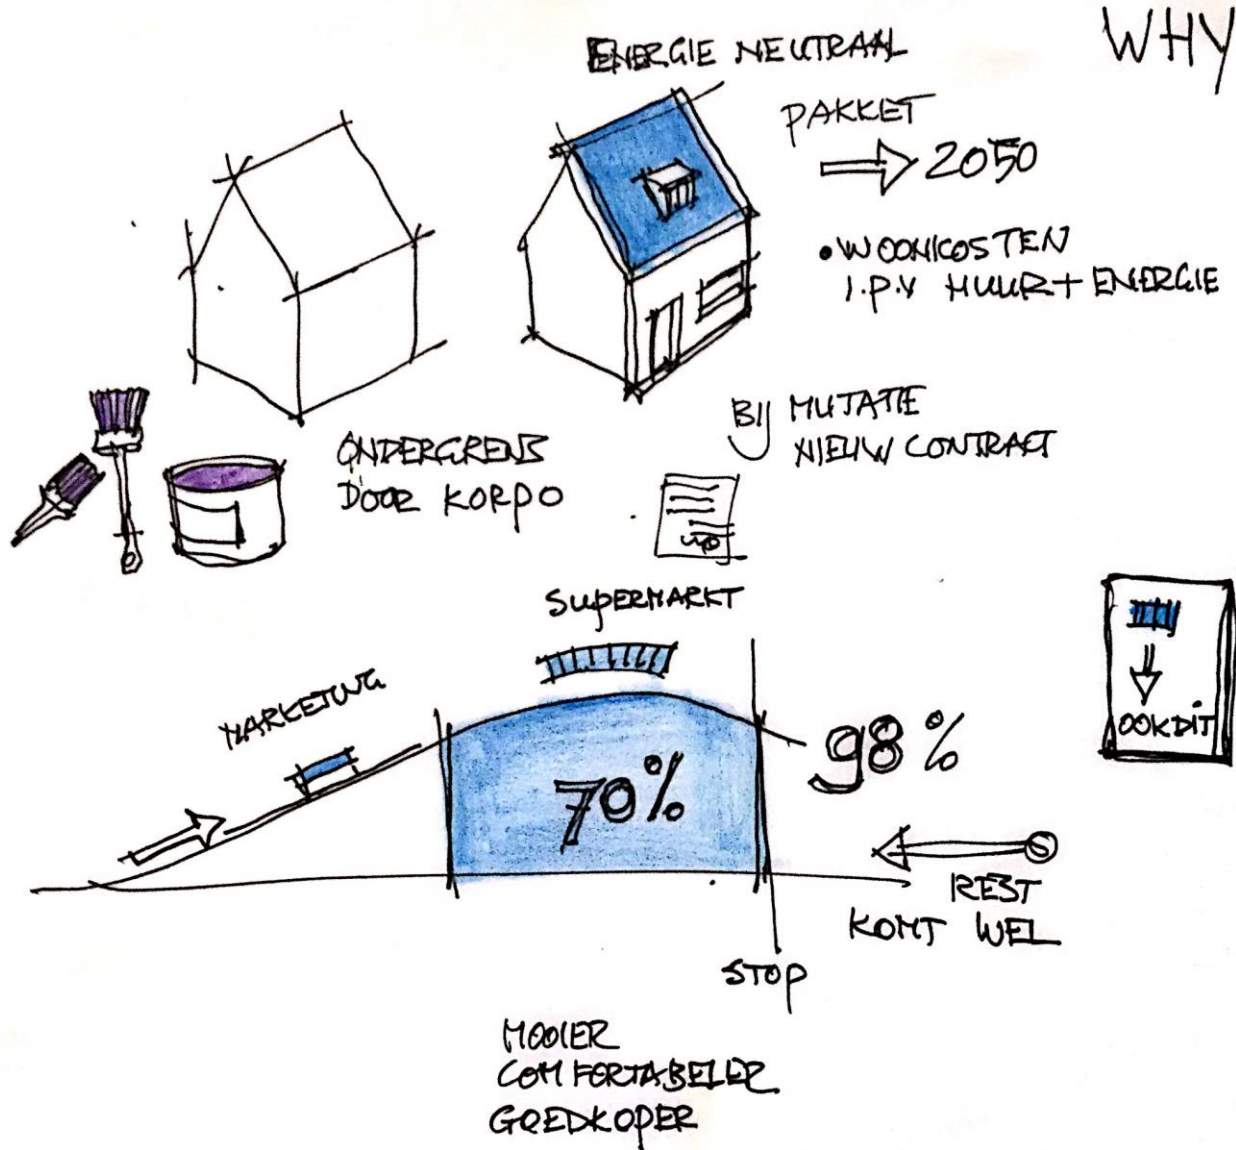 WHY
ENERGIE NEUTRAAL
PAKKET
2050
• WOONKOSTEN
I.P.V HUUR + ENERGIE
BIJ MUTATIE
NIEUW CONTRACT
ONDERGRENS
DOOR KORPO
SUPERMARKT
MARKETING
70%
98%
OOK DIT
REST
KOMT WEL
STOP
MOOIER
COMFORTABELER
GOEDKOPER